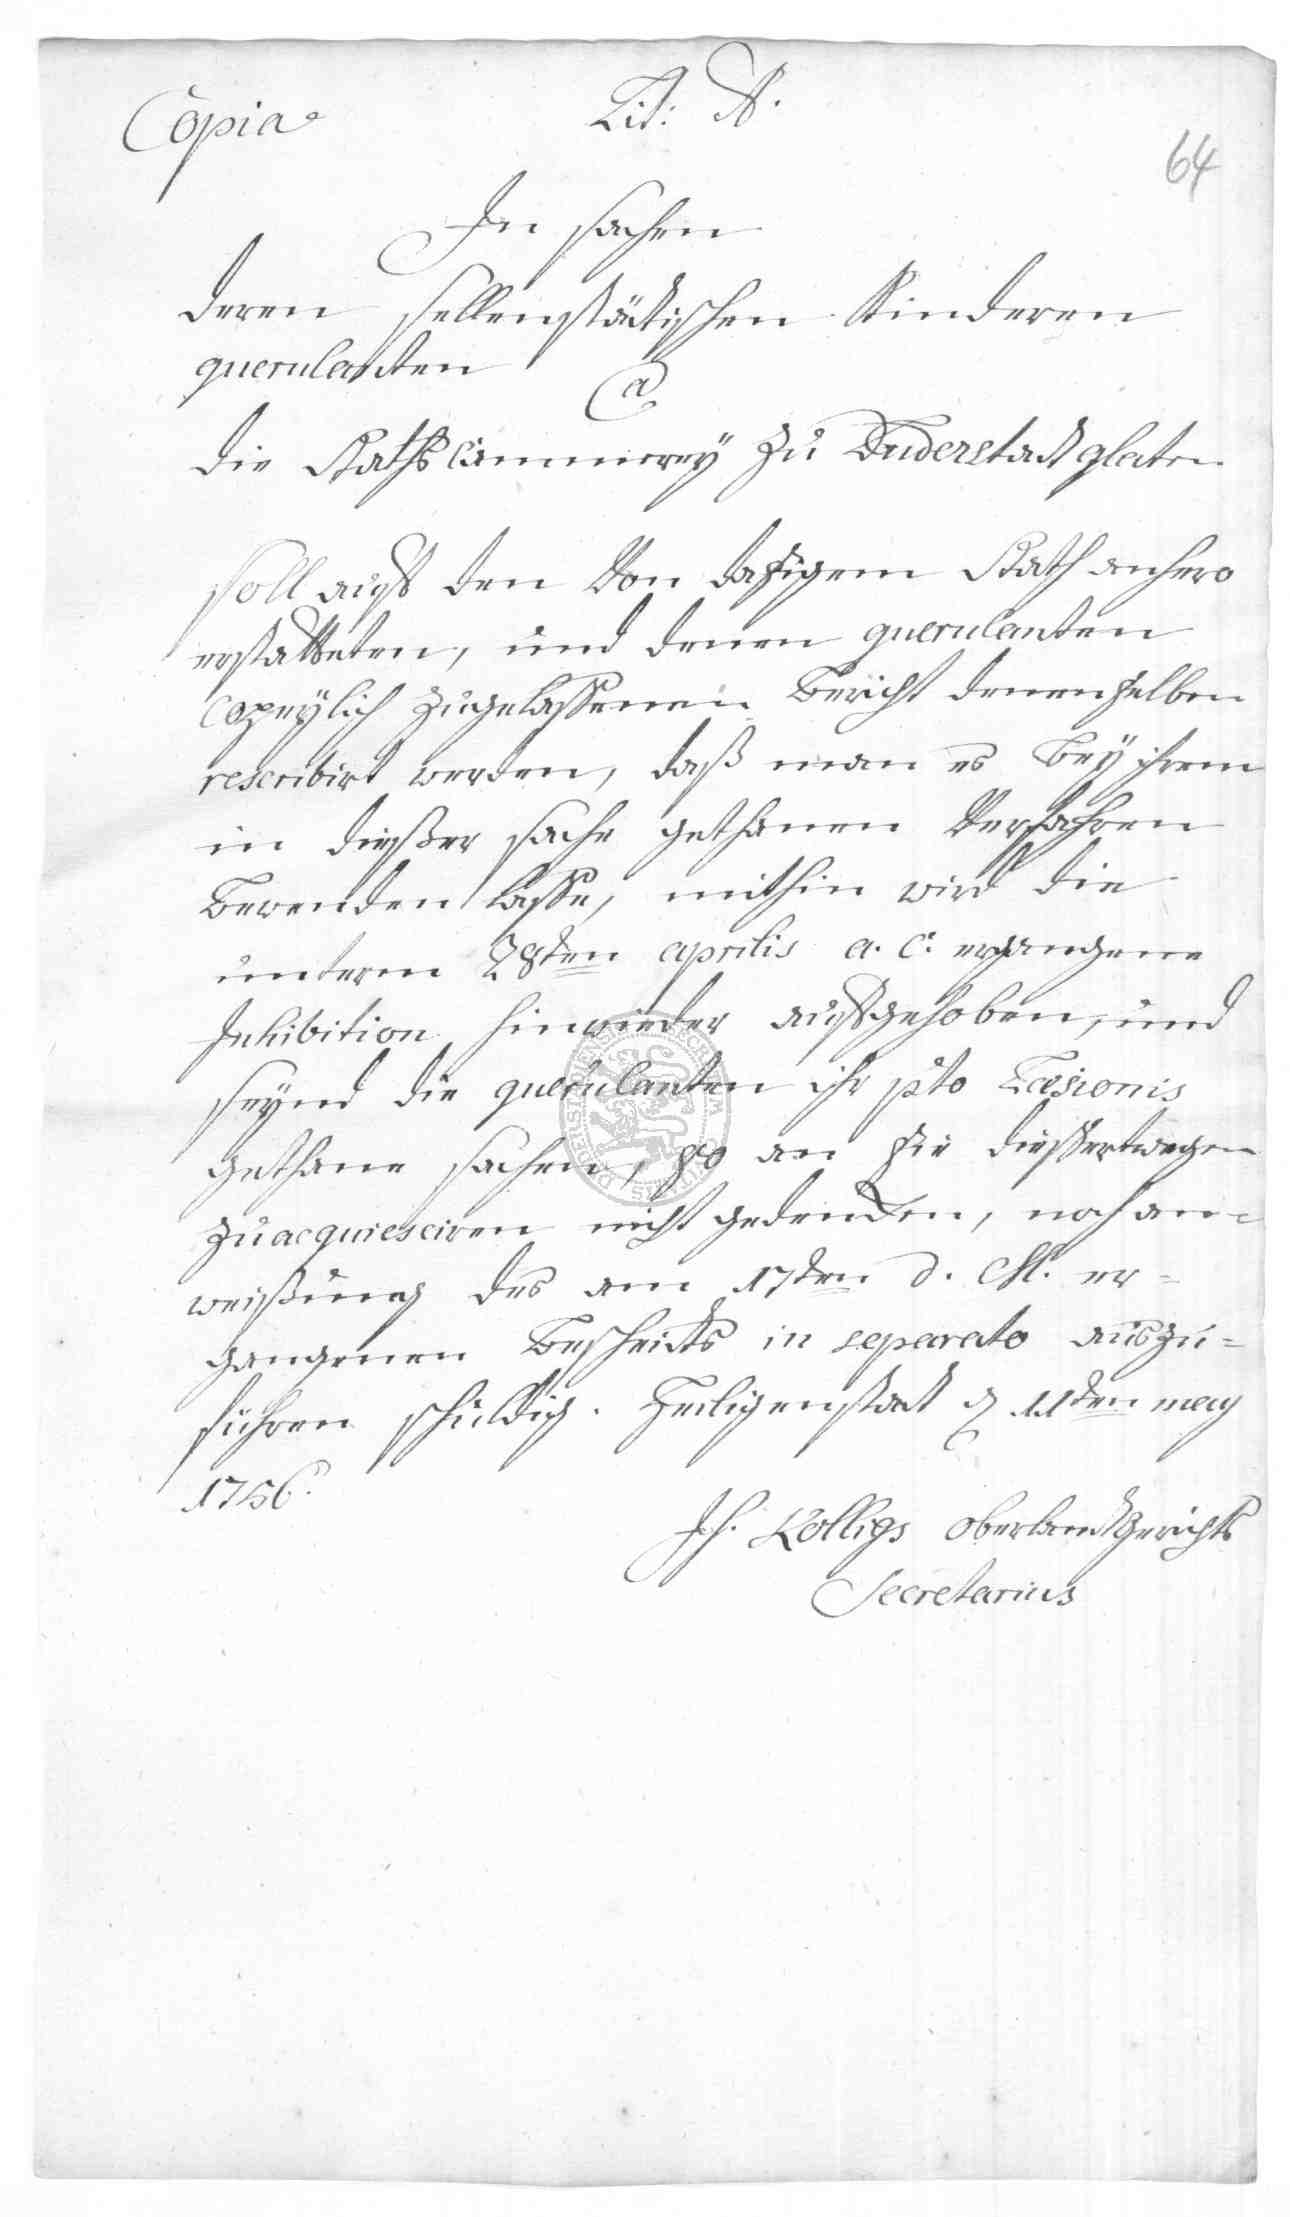 Copia
Lit: A.
64
In sachen
deren sellenstättischen Kinderen
querulanten
Ca
die Rathscämmerey zu Duderstadt qlaten
soll auff den von dasigem Rath anhero
erstatteten, und denen querulanten
copeylich zugelassenen Bericht denenselben
rescribirt werden, daß man es bey ihrem
in dießer sache gethanen Verfahren
bewenden lasse, mithin wird die
unterm 28ten aprilis a. c. ergangene
Inhibition hinwieder auffgehoben, und
seynd die querulanten ihr pto Læsionis
gethane sachen, so an sie diessertwegen
zu acquiesciren nicht gedencken, nach an=
weißung des am 17ten d. M. er=
gangenen Bescheidts in separato auszu=
führen schuldig. Heiligenstadt d 11ten may
1756.
Jh. Kolligs oberlandtgerichts
Secretarius